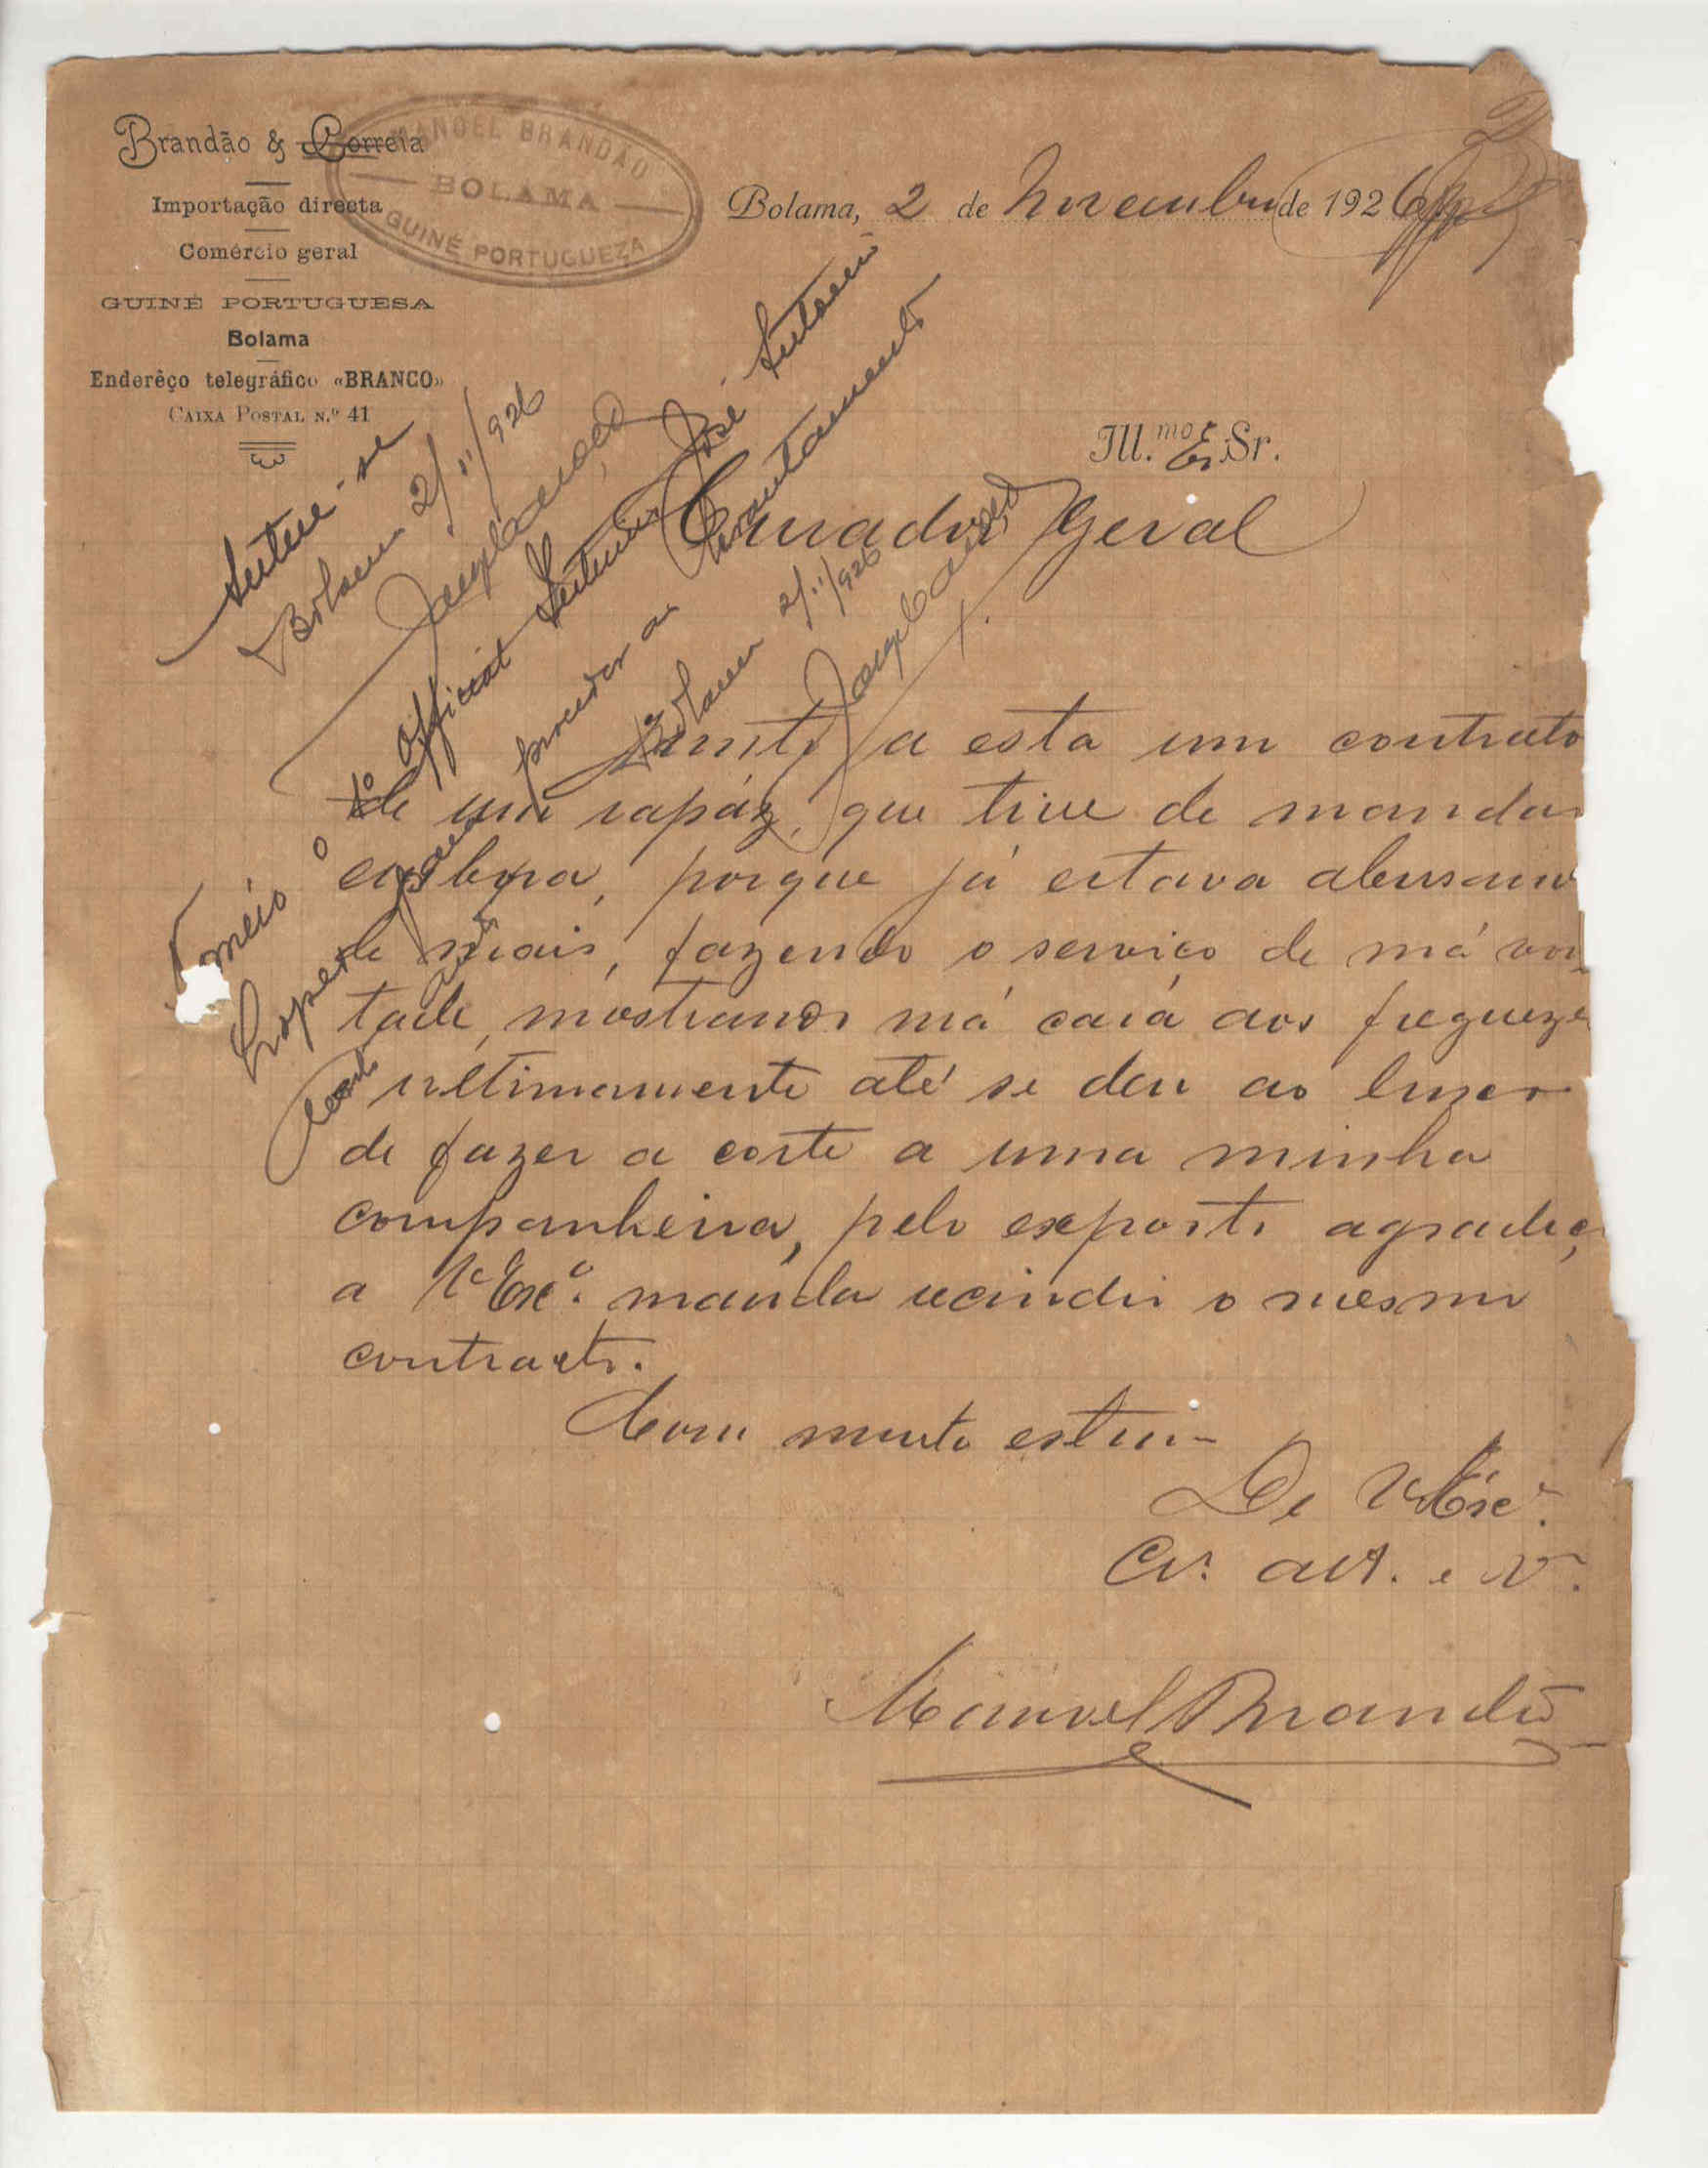 Brandão & Correia
Importação directa
Comércio geral
GUINÉ PORTUGUESA
Bolama
Enderêço telegráfico «BRANCO»
CAIXA POSTAL N.º 41
MANOEL BRANDÃO
BOLAMA
GUINÉ PORTUGUEZA
Bolama, 2 de Novembro de 1926
Ill.mo Ex. Sr.
Curador Geral
Autue-se
Bolama 2/11/926
Nomeio o 1º Official António José
para proceder ao levantamento
Bolama 2/11/926
Junto a esta um contrato
de um rapáz, que tive de mandar
embora, porque já estava abusando
de mais, fazendo o serviço de má von
tade, mostrando má cara aos freguezes
ultimamente até se deu ao luxo
de fazer a corte a uma minha
companheira, pelo exposto agradeço
a V. Exc.ª manda recindir o mesmo
contracto.
Com muita estima
De V. Exc.ª
Cr.º att. e V.
Manuel Brandão